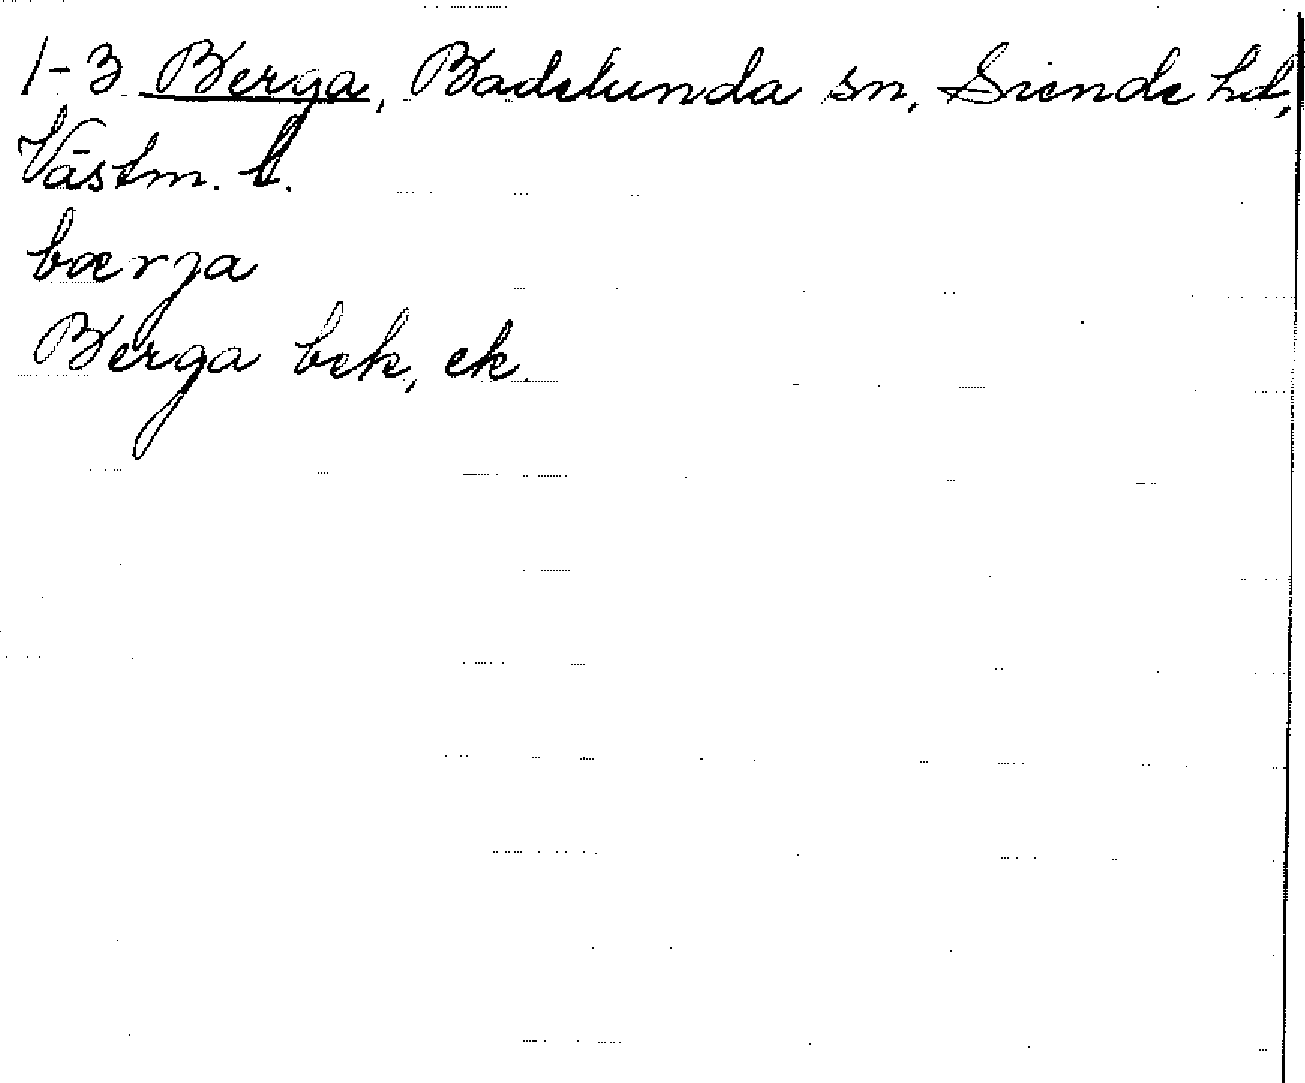 1-3 Berga, Badelunda sn, Siende hd,
Västm. l.
bærja
Berga bek, ek.